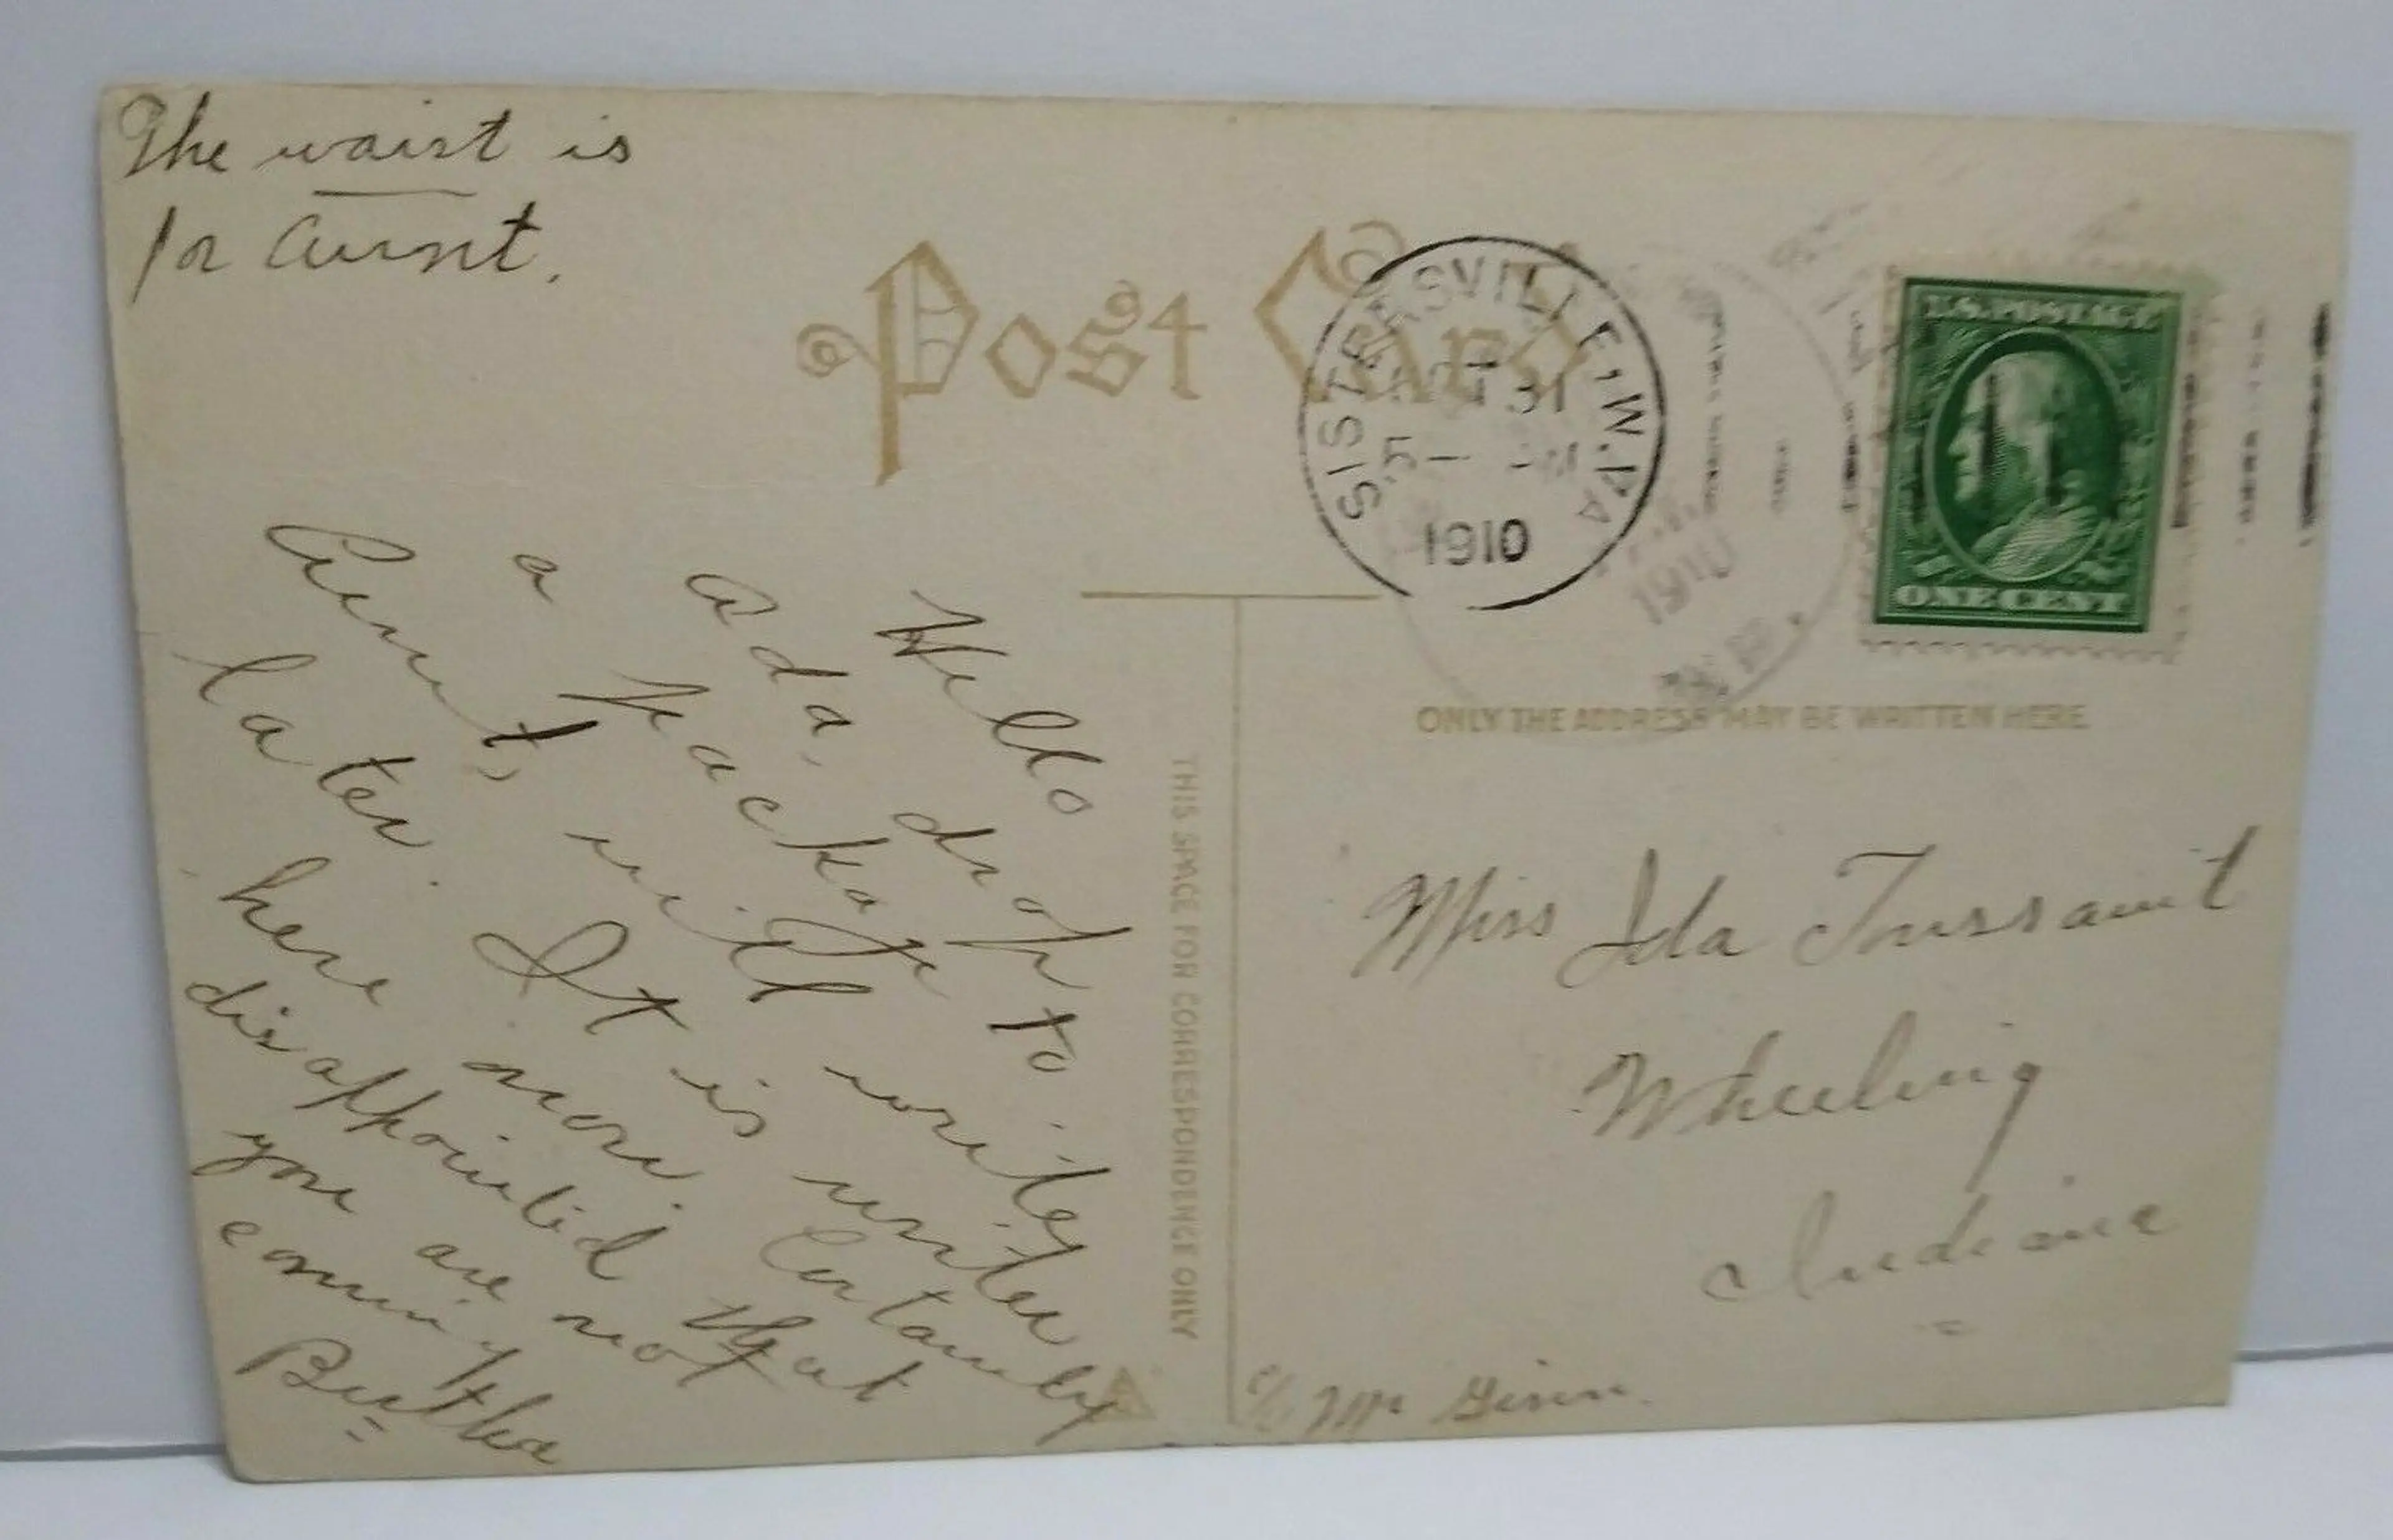 The waist is
for Aunt.
Post Card
SISTERSVILLE, W. VA.
31
5 - M
1910
1910
U.S. POSTAGE
ONE CENT
ONLY THE ADDRESS MAY BE WRITTEN HERE
THIS SPACE FOR CORRESPONDENCE ONLY
Hello
Ada, dropt to
a package
Aunt, will write
later. It is winter
here now. Certainly
disappointed that
you are not
coming
Bertha
Miss Ida Tussaint
Wheeling
Indiana
c/o Mr Ginn.